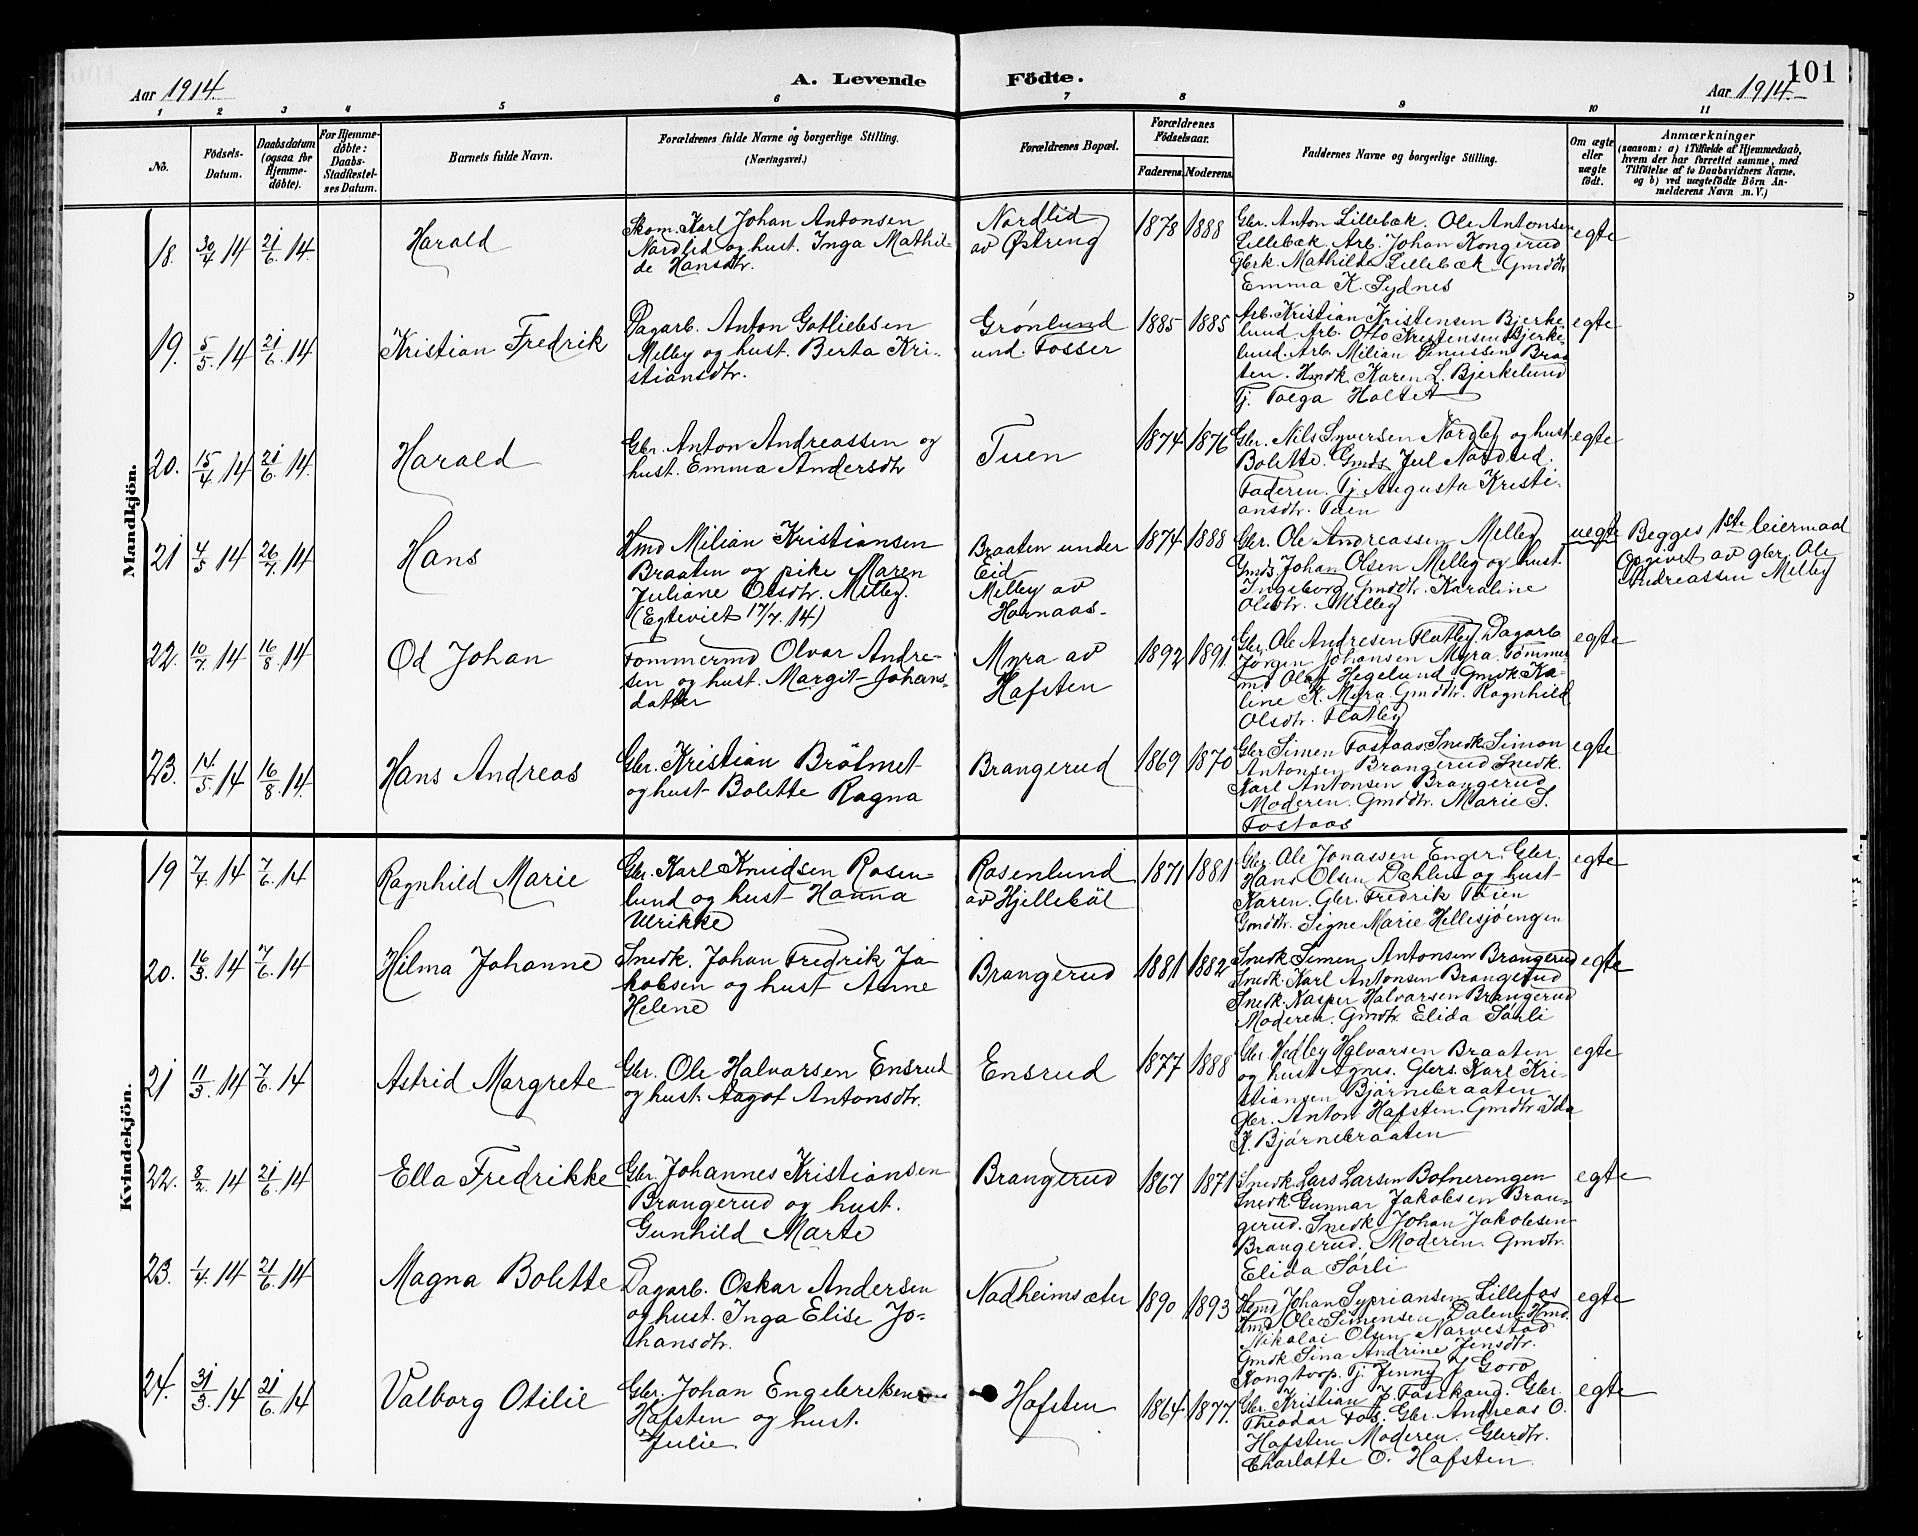 Aar 1914.
A. Levende Födte.
101
Aar 1914.
1 2 3 4 5 6 7 8 9 10 11
No.
Födsels-
Datum.
Daabsdatum
(ogsaa for
Hjemme-
döbte).
For Hjemme-
döbte:
Daabs-
Stadfæstel-
ses Datum.
Barnets fulde Navn.
Forældrenes fulde Navne og borgerlige Stilling.
(Næringsvei.)
Forældrenes Bopæl.
Forældrenes
Födselsaar.
Faderens. Moderens.
Faddernes Navne og borgerlige Stilling.
Om ægte
eller
uægte
födt.
Anmærkninger
(saasom: a) i Tilfælde af Hjemmedaab,
hvem der har forrettet samme, med
Tilföielse af to Daabsvidners Navne,
og b) ved uægtefödte Börn An-
melderens Navn m. V.)
Mandkjön.
18. 30/4 14 21/6 14.
Harald
Skom. Karl Johan Antonsen
Nordlid og hust. Inga Mathil-
de Hansdtr.
Nordlid
av Østreng
1878 1888
Gbr. Anton Lillebæk. Ole Antonsen
Lillebæk. Arb. Johan Kongerud
Gbrk. Mathilde Lillebæk Gmdtr
Emma K. Sydnes
egte
19. 5/5 14 21/6 14
Kristian Fredrik
Dagarb. Anton Gotliebsen
Melby og hust. Berta Kri-
stiansdtr.
Grønlund
und. Fosser
1885 1885
Arb. Kristian Kristensen Bjerke-
lund. Arb. Otto Kristensen Bjerke-
lund. Arb. Milian Linussen Braa
ten. Hmdk Karen L. Bjerkelund
Tj. Tolga Holset
egte
20. 15/4 14 21/6 14.
Harald
Gbr. Anton Andreassen og
hust. Emma Andersdtr
Tuen
1874 1876
Gbr. Nils Syversen Nordby og hust.
Bolette. Gmds Jul Nordlid.
Faderen. Tj. Augusta Kristi-
ansdtr. Tuen
egte
21 4/5 14 26/7 14
Hans
Hmd Milian Kristiansen
Braaten og pike Maren
Juliane Olsdtr. Melby.
(Egteviet 17/7. 14)
Braaten under
Eid
Melby av
Hornaas-
1874 1888
Gbr. Ole Andreassen Melby
Gmds. Johan Olsen Melby og hust.
Ingeborg Gmddtr. Karoline
Olsdtr. Melby
uegte
Begges 1ste leiermaal
Opgivet av gbr. Ole
Andreassen Melby
22. 10/7 14 16/8 14
Od Johan
Tømmermd Olvar Andre-
sen og hust. Margit Johans-
datter
Myra av
Hafsten
1892 1891.
Gbr. Ole Andresen Flatby. Dagarb
Jörgen Johansen Myra. Tömmer-
md Olaf Hegelund, Gmdk Ka-
line K. Myra. Gmddtr. Ragnhild
Olsdtr. Flatby
egte
23. 14/5 14 16/8 14.
Hans Andreas
Gbr. Kristian Bråtmet
og hust Bolette Ragna
Brangerud
1869 1870
Gbr Simen Fostaas Snedk Simon
Antonsen Brangerud Snedk.
Karl Antonsen Brangerud
Moderen. Gmddtr. Marie S.
Fostaas
egte
Kvindekjön.
19 7/4 14 7/6 14
Ragnhild Marie
Gbr. Karl Knudsen Rosen-
lund og hust Hanna
Ulrikke
Rosenlund
av Hjellebøl
1871 1881
Gbr. Ole Jonassen Enger. Gbr
Hans Olsen Dæhlin og hust
Karen. Gbr. Fredrik Tøien
Gmddtr. Signe Marie Hellesjöengen
egte
20. 16/3 14 7/6 14
Hilma Johanne
Snedk. Johan Fredrik Ja-
kobsen og hust Anne
Helene
Brangerud
1881 1882
Snedk Simen Antonsen Brangerud
Snedk. Karl Antonsen Brangerud
Snedk. Kasper Halvarsen Brangerud
Moderen. Gmdtr. Elida Sörli
egte
21 11/3 14 7/6 14
Astrid Margrete
Gbr. Ole Halvarsen Ensrud
og hust. Aagot Antonsdtr.
Ensrud
1877 1888
Gbr. Hedley Halvarsen Braaten
og hust Agnes. Gbrs. Karl Kri-
stiansen Bjørnebraaten
Gbr. Anton Hafsten. Gmdtr Ida
K. Bjørnebraaten
egte
22. 8/2 14 21/6 14
Ella Fredrikke
Gbr. Johannes Kristiansen
Brangerud og hust.
Gunhild Marte
Brangerud
1867 1871
Snedk. Lars Larsen Botnerengen
Snedk Gunnar Jakobsen Bran-
gerud. Snedk Johan Jakobsen
Brangerud. Moderen. Gmdtr.
Elida Sörli
egte
23. 1/4 14 21/6 14
Magna Bolette
Dagarb. Oskar Andersen
og hust. Inga Elise Jo-
hansdtr.
Nadheimsæter
1890 1893
Hmd Johan Sypriansen Lillefos
Hmd Ole Simensen Dalen. Hmd
Nikolai Olsen Narvestad
Gmdk Sina Andrine Jensdtr.
Kongtorp. Tj. Jenny J Goro
egte
24. 31/3 14 21/6 14
Valborg Otilie
Gbr. Johan Engebretsen
Hafsten og hust.
Julie
Hafsten
1864. 1877.
Gbr. Kristian J. Fosshaug. Gbr.
Theodor Fos. Gbr. Andreas O.
Hafsten Moderen. Gbrdtr.
Charlotte O. Hafsten.
egte